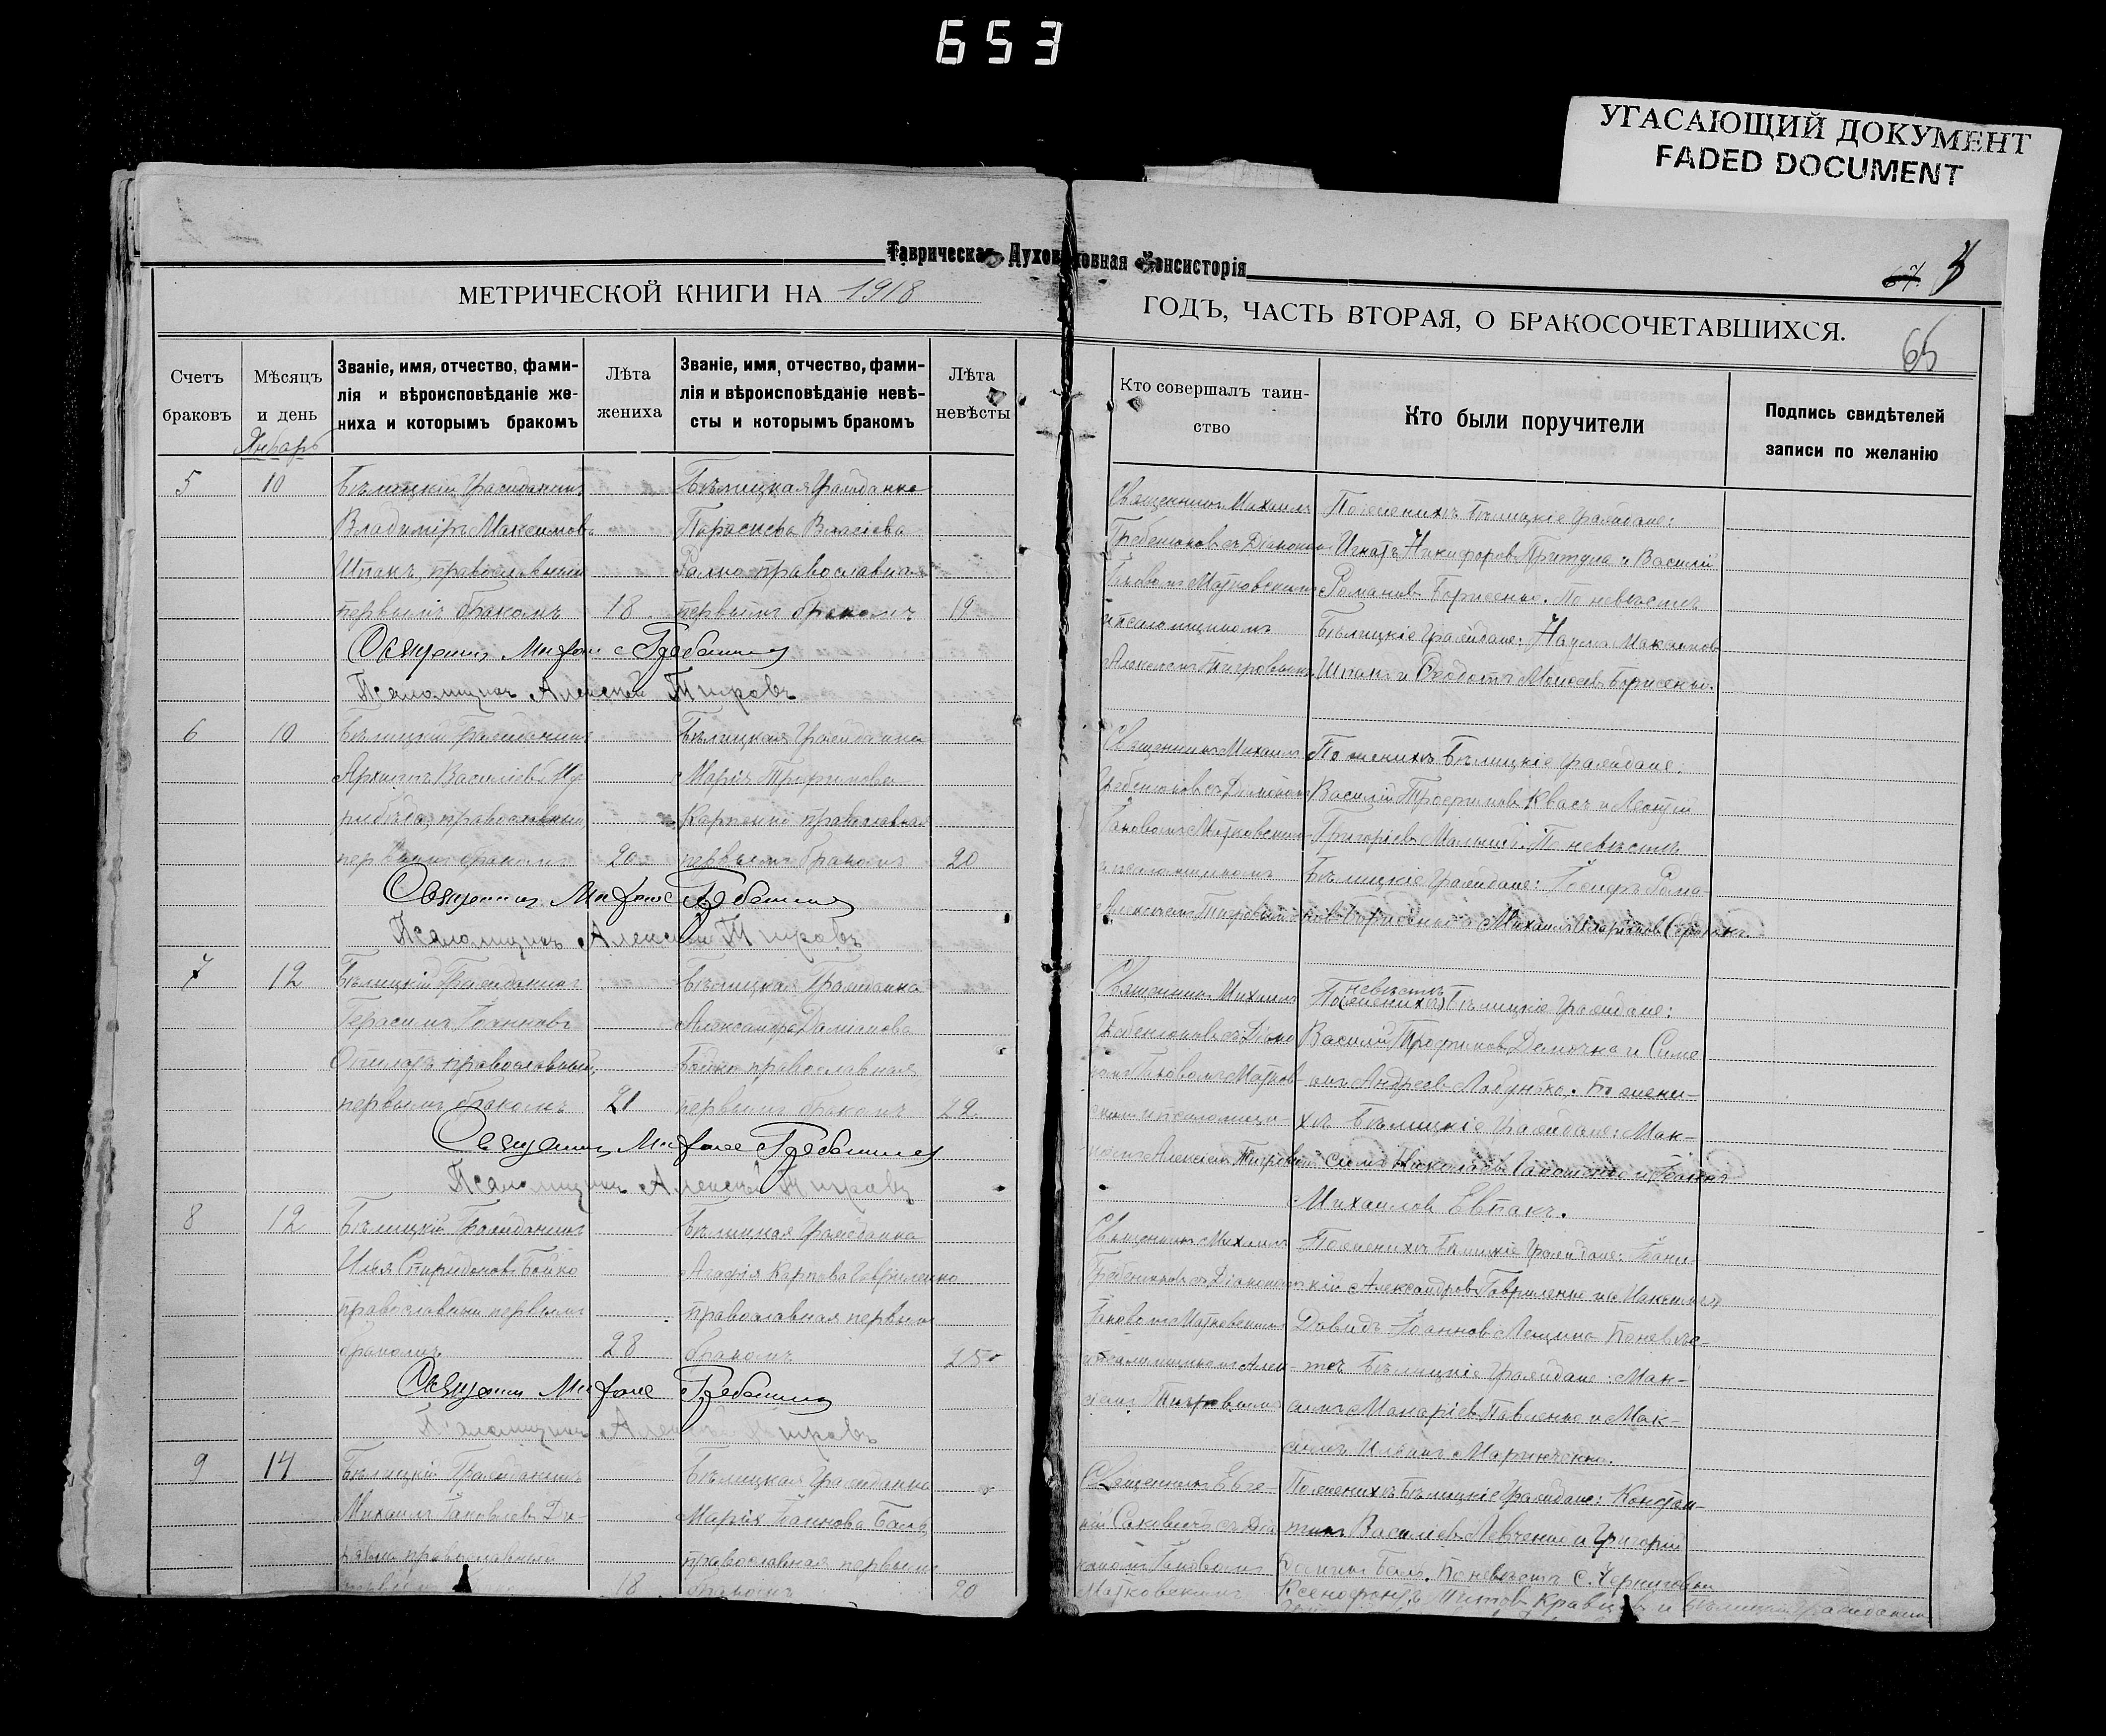 653
УГАСАЮЩИЙ ДОКУМЕНТ
FADED DOCUMENT
Таврическая Духовная Консисторія
МЕТРИЧЕСКОЙ КНИГИ НА 1918
ГОДЪ, ЧАСТЬ ВТОРАЯ, О БРАКОСОЧЕТАВШИХСЯ.
66
Счетъ
браковъ
Мѣсяцъ
и день
Январь
Званіе, имя, отчество, фами-
лія и вѣроисповѣданіе же-
ниха и которымъ бракомъ
Лѣта
жениха
Званіе, имя, отчество, фами-
лія и вѣроисповѣданіе невѣ-
сты и которымъ бракомъ
Лѣта
невѣсты
Кто совершалъ таин-
ство
Кто были поручители
Подпись свидѣтелей
записи по желанію
5
10
Бѣлицкій Гражданинъ
Владиміръ Максимовъ
Шпакъ, православный
первымъ бракомъ
18
Бѣлицкая Гражданка
Параскева Власіева
православная
первымъ бракомъ
19
Священникъ Михаилъ
Гребенюковъ съ Діакономъ
Іаковомъ Матковскимъ
и псаломщикомъ
Алексіемъ Тигровымъ
По женихѣ Бѣлицкіе Граждане:
Игнатъ Никифоровъ Притула и Василій
Романовъ Борисенко. По невѣстѣ
Бѣлицкіе Граждане: Наумъ Максимовъ
Шпакъ и Ѳеодотъ Моисеевъ Борисенко.
Священникъ Михаилъ Гребенюковъ
Псаломщикъ Алексѣй Тигровъ
6
10
Бѣлицкій Гражданинъ
Архиппъ Василіевъ
православный
первымъ бракомъ
20
Бѣлицкая Гражданка
Марія Трофимова
Карпенко православная
первымъ бракомъ
20
Священникъ Михаилъ
Гребенюковъ съ Діакономъ
Іаковомъ Матковскимъ
и псаломщикомъ
Алексіемъ Тигровымъ
По женихѣ Бѣлицкіе Граждане:
Василій Трофимовъ Квасъ и Леонтій
Григоріевъ По невѣстѣ
Бѣлицкіе Граждане: Іосифъ Рома-
новъ Борисенко и Михаилъ
Священникъ Михаилъ Гребенюковъ
Псаломщикъ Алексѣй Тигровъ
7
12
Бѣлицкій Гражданинъ
Герасимъ Іоанновъ
православный
первымъ бракомъ
21
Бѣлицкая Гражданка
Александра
Бойко православная
первымъ бракомъ
Священникъ Михаилъ
Гребенюковъ съ Діако
номъ Іаковомъ Матков-
скимъ и псаломщи-
комъ Алексіемъ Тигровымъ
невѣстѣ
По (женихѣ) Бѣлицкіе Граждане:
Василій Трофимовъ Демочка и Симе
онъ Андреевъ По жени-
хѣ Бѣлицкіе Граждане: Мак-
симъ Николаевъ и Іоаннъ
Михаиловъ Евпакъ.
Священникъ Михаилъ Гребенюковъ
Псаломщикъ Алексѣй Тигровъ
8
12
Бѣлицкій Гражданинъ
Илья Спиридоновъ Бойко
православный первымъ
бракомъ
28
Бѣлицкая Гражданка
Агафія Карпова Гавриленко
православная первымъ
бракомъ
25
Священникъ Михаилъ
Гребенюковъ съ Діакономъ
Іаковомъ Матковскимъ
и псаломщикомъ Алек-
сіемъ Тигровымъ
По женихѣ Бѣлицкіе Граждане: Іоани-
кій Александровъ Гавриленко и
Давидъ Іоанновъ Лещина По невѣс-
тѣ Бѣлицкіе Граждане: Мак-
симъ Макаріевъ Павленко и Мак-
симъ Ильинъ Мариченко.
Священникъ Михаилъ Гребенюковъ
Псаломщикъ Алексѣй Тигровъ
9
14
Бѣлицкій Гражданинъ
Михаилъ Іаковлевъ
православный
18
Бѣлицкая Гражданка
Марія Іаннова
православная первымъ
бракомъ
20
Священникъ Евге-
ній Саковичъ съ Діа
кономъ Іаковомъ
Матковскимъ
По женихѣ Бѣлицкіе Граждане: Констан-
тинъ Василіевъ Левченко и Григорій
По невѣстѣ С. Черниговки
Ксенофонтъ Титовъ Кравцовъ и Бѣлицкій Гражданинъ